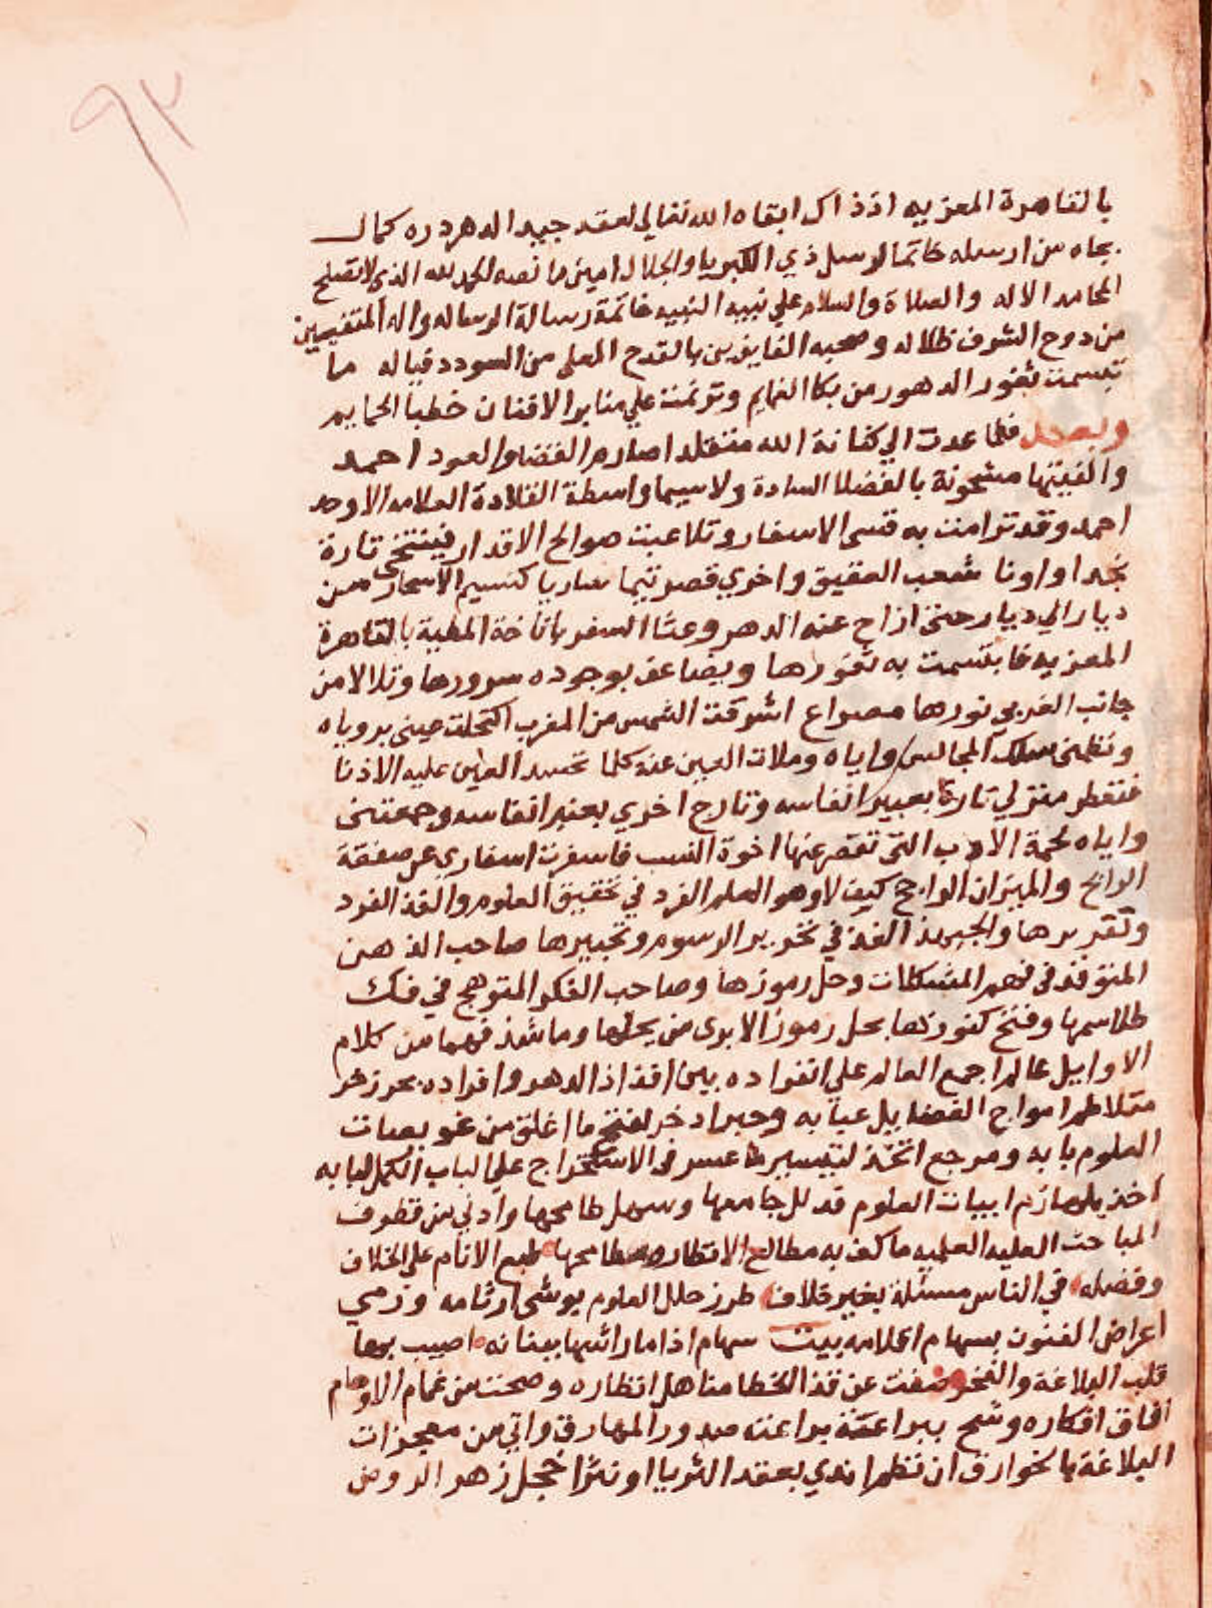 ٩٢
بالقاهرة المعزيه اذذاك ابقاه الله تعالي لعقد جيد الدهر دره كمال
بجاه من ارسله خاتما لرسل ذي الكبريا والجلال امين ما نصه الحمد لله الذي لا تصلح
المحامد الا له والصلاة والسلام علي نبيه النبيه خاتمة رسالة الرساله واله المتفيين
من دوح الشرف ظلاله وصحبه الفايزين بالقدح المعلى من السودد فياله ما
تبسمت ثغور الدهور من بكا الغمايم وترنمت علي منابر الافنان خطبا الحمايم
وبعد فلما عدت الي كنانة الله متقلدا صارم القضا والعود احمد
والفيتها مشحونة بالفضلا السادة ولاسيما واسطة القلادة العلامه الاوحد
احمد وقد ترامت به قسى الاسفار وتلاعبت صوالح الاقدار فينتحى تارة
نجدا واونا شعب العقيق واخري قصر تيما ساريا كنسيم الاسحار من
ديار الي ديار حتى ازاح عنه الدهر وعثا السفر باناخة المطية بالقاهرة
المعزيه فابتسمت به ثغورها وبضاعف بوجوده سرورها وتلالا من
جانب الغربي نورها مصراع اشرقت الشمس من المغرب اكتحلت عيني بروياه
ونظمنى سلك المجالس واياه وملات العين عنه كلما تحسد العين عليه الاذنا
فتقطر منزلي تارة بعبير انفاسه وتارج اخري بعنبر انفاسه وجمعتنى
واياه لحمة الادب التى تقصر عنها اخوة النسب فاسفرت اسفاري عن صفقة
الرابح والميزان الراجح كيف لا وهو العلم الفرد في تحقيق العلوم والفذ الفرد
وتقريرها والجهبذ الفذ في تحرير الرسوم وتحبيرها صاحب الذهن
المتوقد فى فهم المشكلات وحل رموزها وصاحب الفكر المتوهج في فك
طلاسمها وفتح كنوزها بحل رموزا لا يرى من يحلها وما شذ فهما من كلام
الاوايل عالم اجمع العالم علي انفراده بين افذاذ الدهر وافراده بحر زخر
متلاطم امواج الفضايل عبابه وحبر ادخر لفتح ما اغلق من غويصات
العلوم بابه ومرجع اتخذ لتيسير ما عسر فى الاستخراج علي لباب الكمل لبابه
اخذ بلهازم ابيات العلوم قد لل جامعها وسهل طامحها وادني من قطوف
المباحث العليه العلميه ما كف به مطالع الانظار ومطامحها طبع الانام على الخلاف
وفضله في الناس مسئلة بغير خلاف طرز حلل العلوم بوشى ارثامه ورمي
اعراض الفنون بسهام اعلامه بيت سهام اذا ما راشها ببنانه اصيب بها
قلب البلاغة والنحر صفت عن قذا الخطا مناهل انظاره وصحت من غمام الاوهام
افاق افكاره وشح ببراعة يراعته صدور المهارق واتي من معجزات
البلاغة بالخوارق ان نظم ازدي بعقد الثريا او نثر اخجل زهر الروض